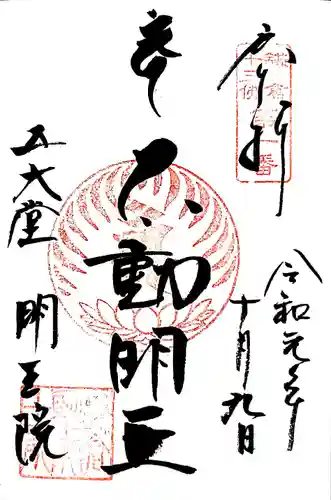 奉拝
鎌倉
十三仏
一番
不動明王
五大堂
明王院
令和元年
十月九日